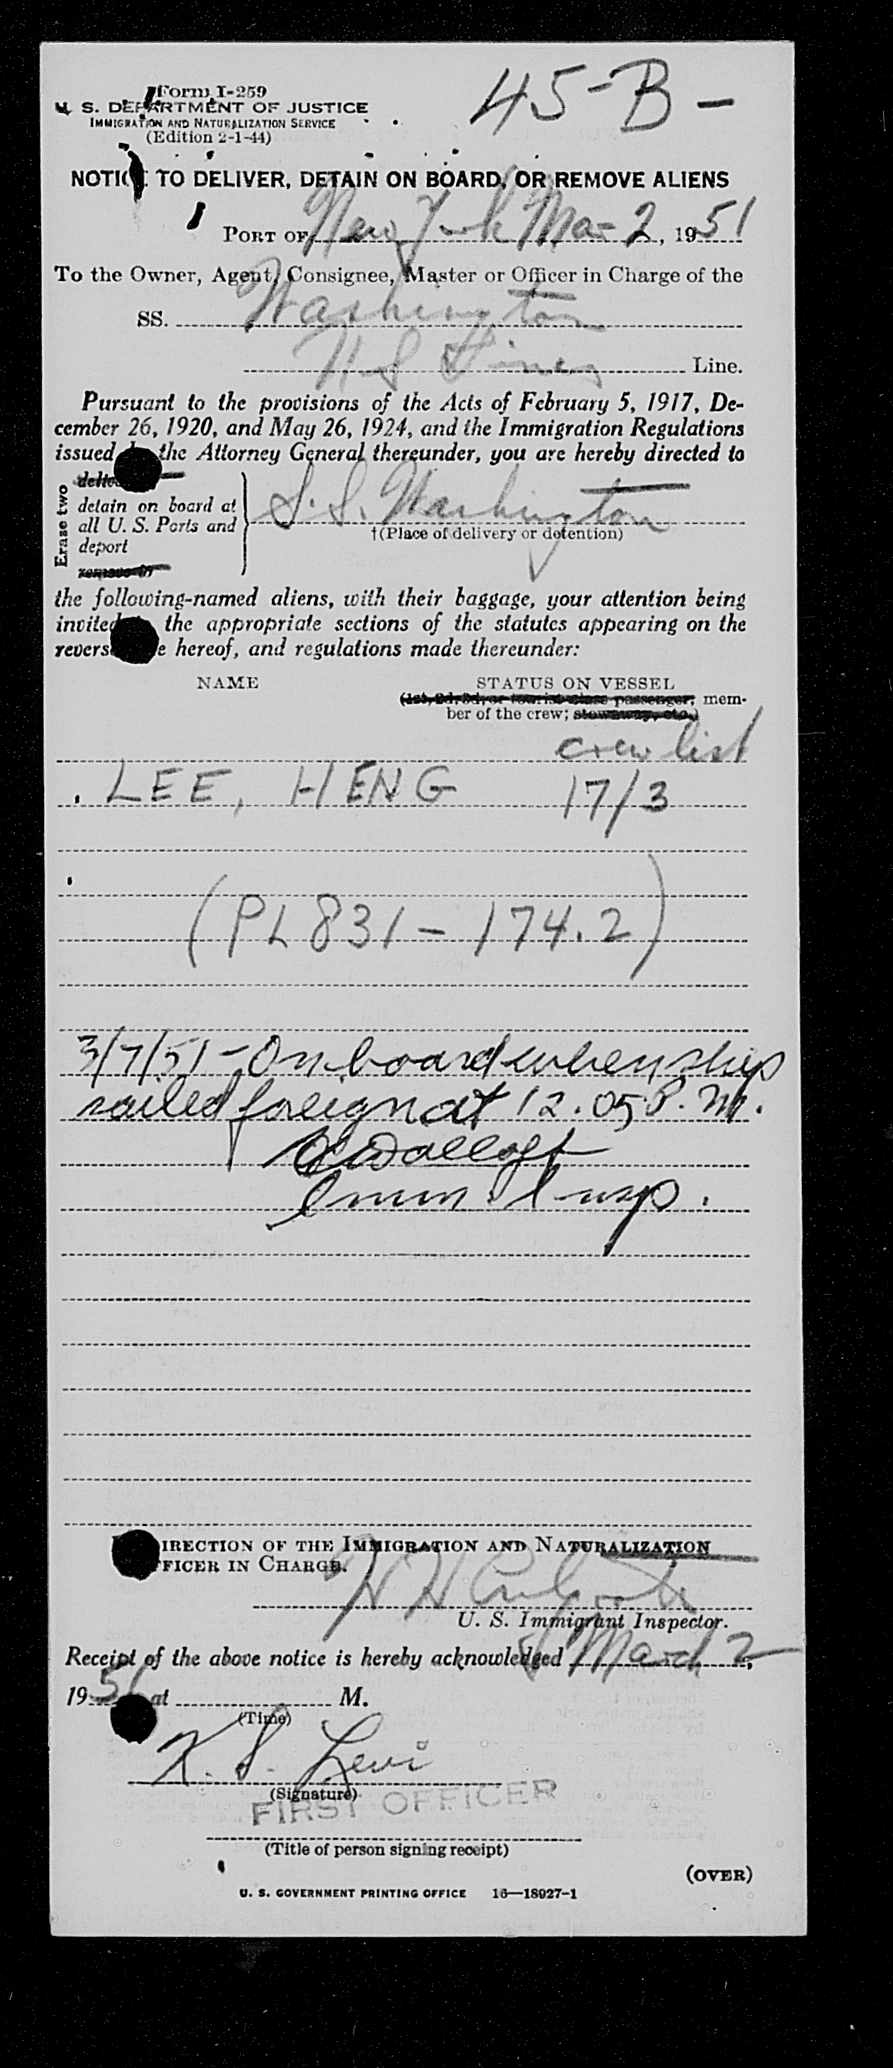 Form I-259
45-B-
U. S. DEPARTMENT OF JUSTICE
IMMIGRATION AND NATURALIZATION SERVICE
(Edition 2-1-44)
NOTICE TO DELIVER, DETAIN ON BOARD, OR REMOVE ALIENS
PORT OF New York Mar 2, 1951
To the Owner, Agent, Consignee, Master or Officer in Charge of the
SS. Washington
U S Lines Line.
Pursuant to the provisions of the Acts of February 5, 1917, De-
cember 26, 1920, and May 26, 1924, and the Immigration Regulations
issued by the Attorney General thereunder, you are hereby directed to
Erase two
deliver
detain on board at
all U. S. Ports and
deport
remove to
S.S. Washington
†(Place of delivery or detention)
the following-named aliens, with their baggage, your attention being
invited to the appropriate sections of the statutes appearing on the
reverse hereof, and regulations made thereunder:
NAME STATUS ON VESSEL
(1st, 2d, 3d, or tourist class passenger; mem-
ber of the crew; stowaway, etc.)
crew list
LEE, HENG 17/3
(PL 831-174.2)
3/7/51-On board when ship
sailed foreign at 12.05 P.M.
Imm. Insp.
DIRECTION OF THE IMMIGRATION AND NATURALIZATION
OFFICER IN CHARGE.
U. S. Immigrant Inspector.
Receipt of the above notice is hereby acknowledged March 2,
1951 at M.
(Time)
K. S. Levi
(Signature)
FIRST OFFICER
(Title of person signing receipt)
(OVER)
U. S. GOVERNMENT PRINTING OFFICE 16—18927-1